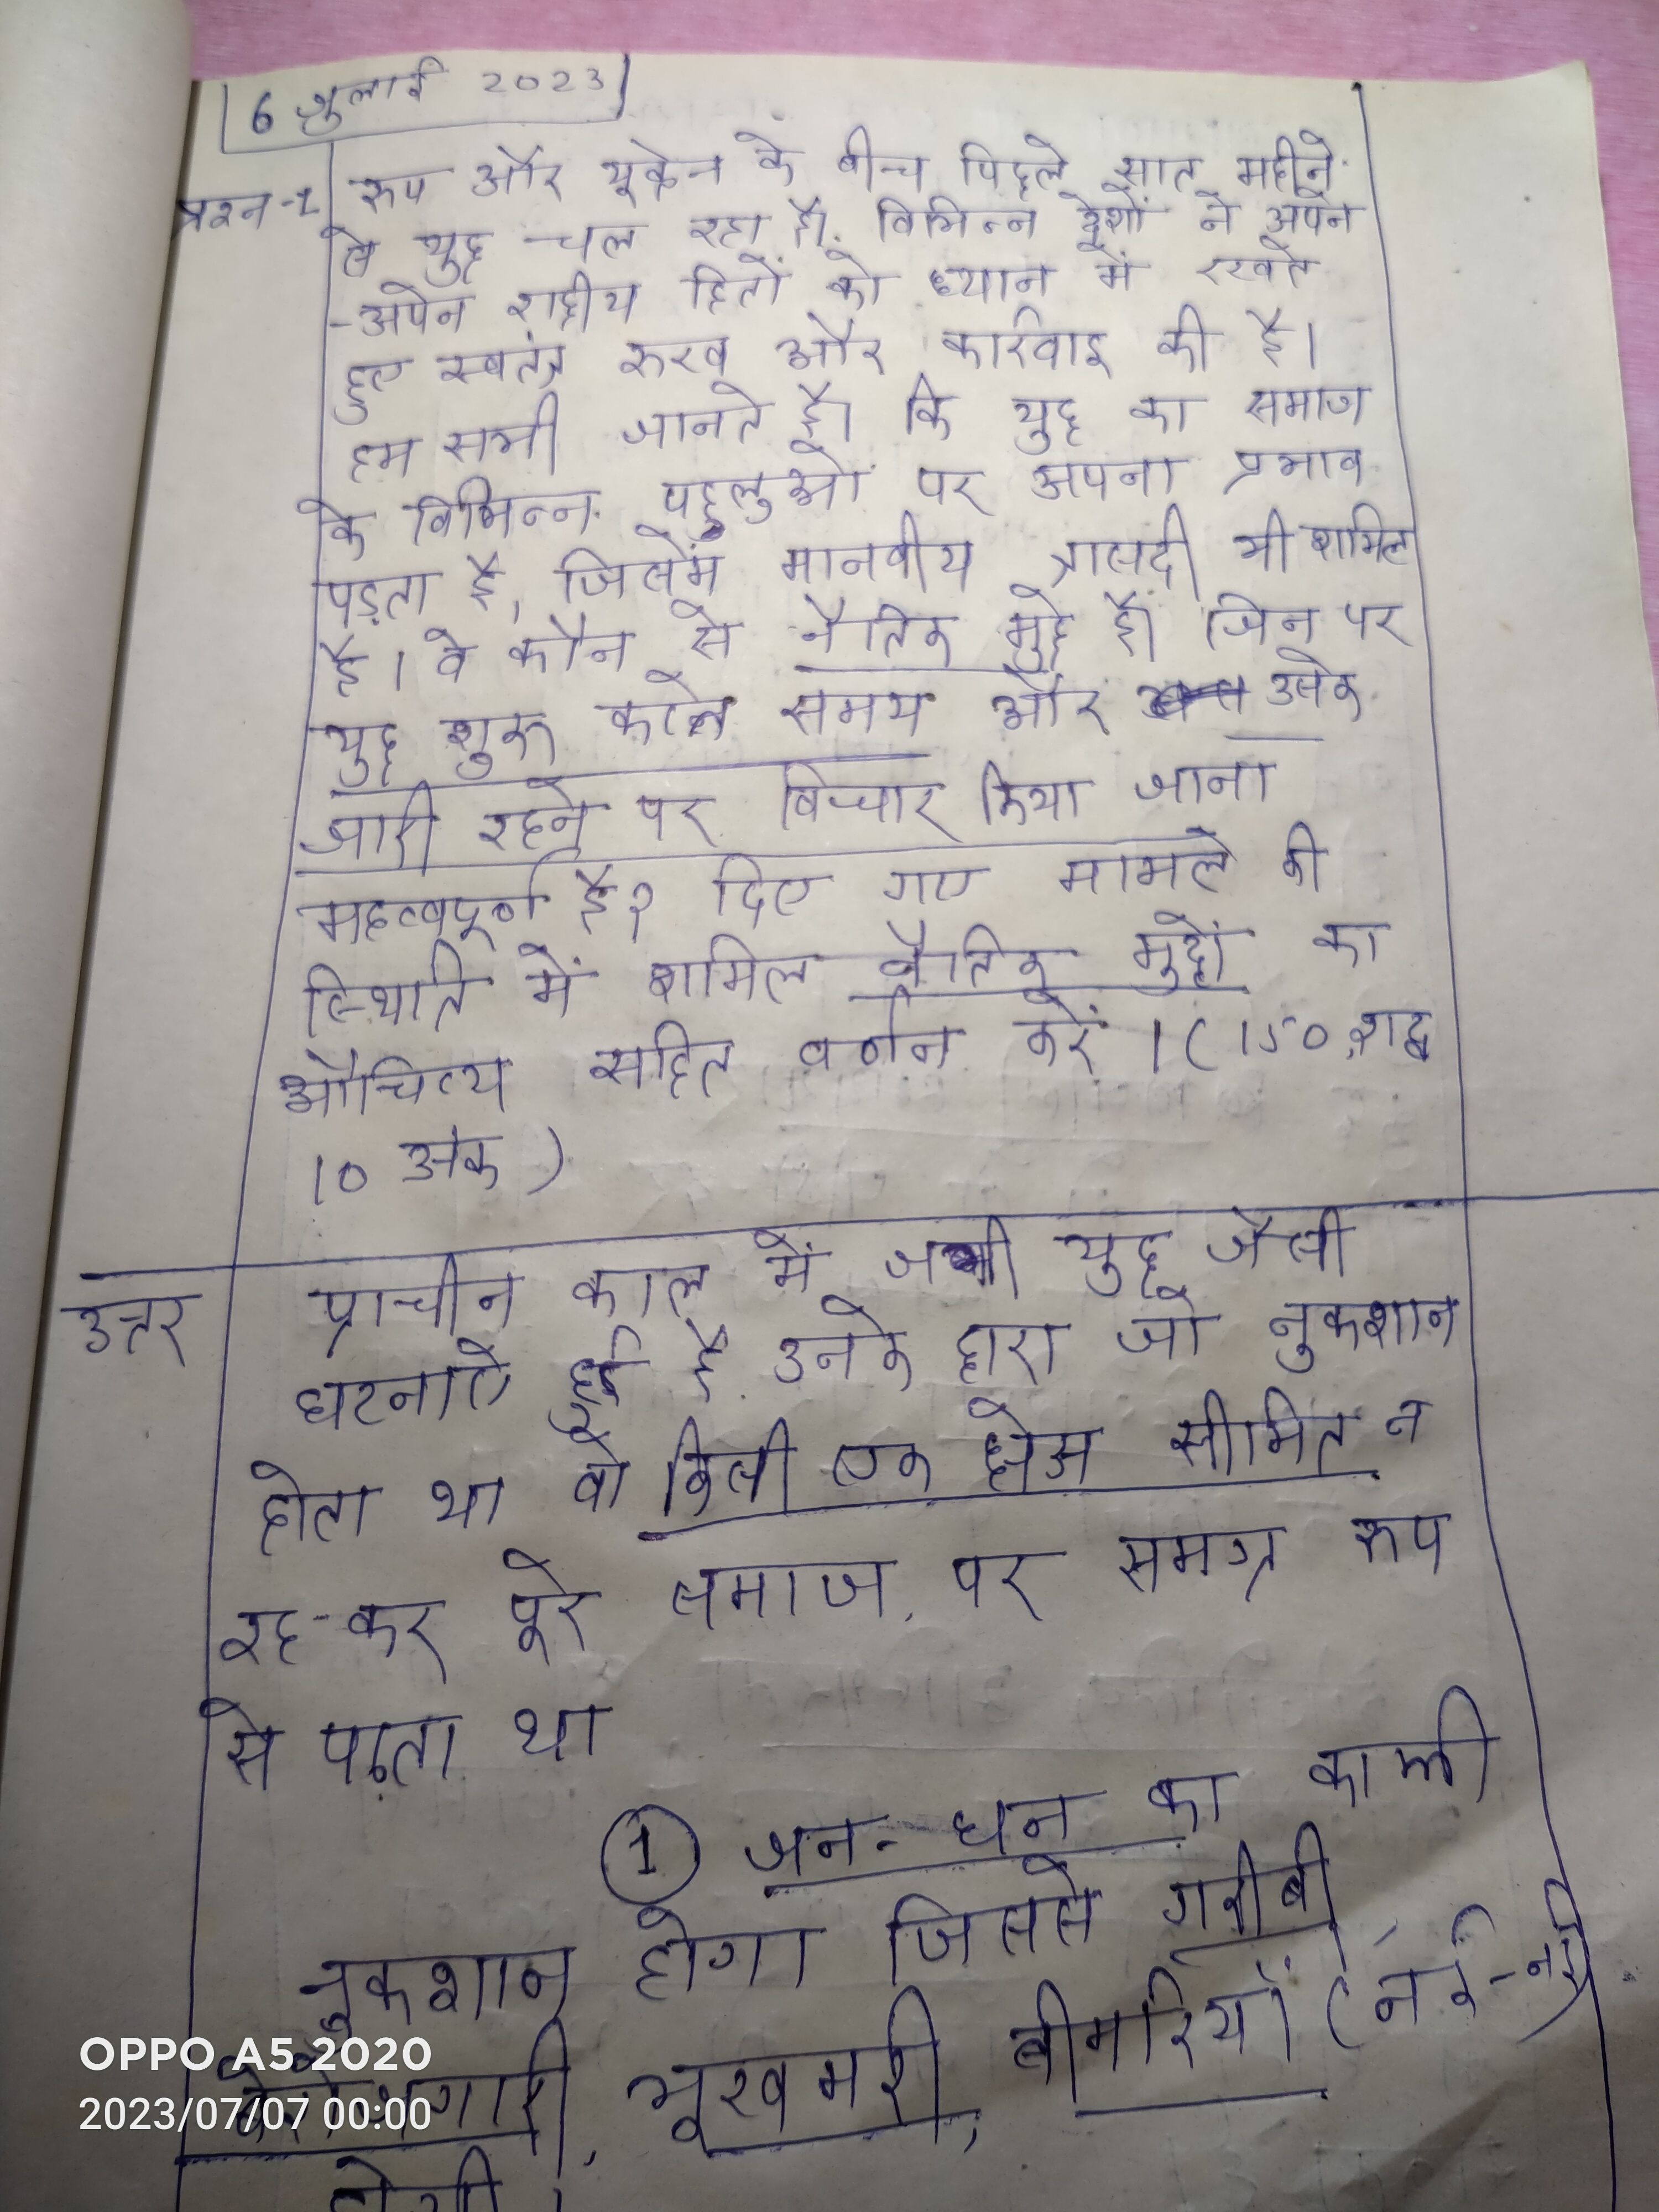 6 जुलाई 2023
प्रश्न-1 रूप और यूक्रेन के बीच पिछले सात महीने
से युद्ध चल रहा है। विभिन्न देशों ने अपने
-अपने राष्ट्रीय हितों को ध्यान में रखते
हुए स्वतंत्र रुख और कार्रवाइ की है।
हम सभी जानते है। कि युद्ध का समाज
के विभिन्न पहलुओं पर अपना प्रभाव
पड़ता है, जिसमें मानवीय त्रासदी भी शामिल
है। वे कौन से नैतिक मुद्दे है। जिन पर
युद्ध शुरू करते समय और उसके
जारी रहने पर विचार किया जाना
महत्वपूर्ण है? दिए गए मामले की
स्थिति में शामिल नैतिक मुद्दों का
औचित्य सहित वर्णन करें। (150 शब्द
10 अंक)
उत्तर प्राचीन काल में जभी युद्ध जैसी
घटनाऐ हुई है उनके द्वारा जो नुकशान
होता था वो किसी एक क्षेत्र सीमित न
रह-कर पूरे समाज पर समग्र रूप
से पढ़ता था
1 जन-धन का काफी
नुकशान होगा जिससे गरीबी,
बेरोजगारी, भूखमरी, बीमारियाँ (नई-नयी
होगी।
OPPO A5 2020
2023/07/07 00:00